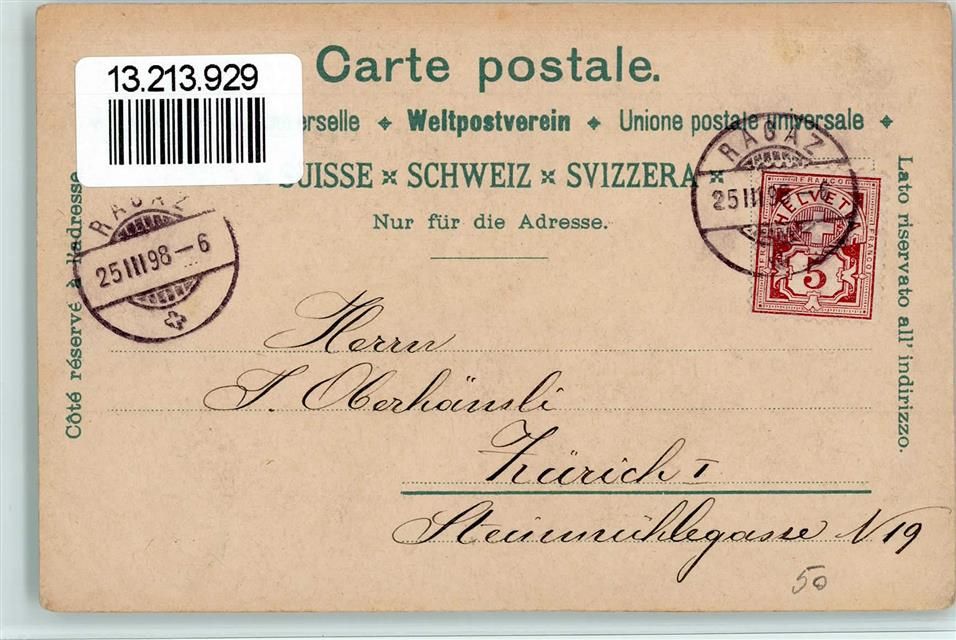 13.213.929
Carte postale.
erselle ✦ Weltpostverein ✦ Unione postale universale ✦
SUISSE × SCHWEIZ × SVIZZERA ×
Nur für die Adresse.
Côté réservé à l'adresse
Lato riservato all' indirizzo.
RAGAZ
25 III 98 – 6
RAGAZ
25 III 98 – 6
FRANCO
HELVETIA
FRANCO
FRANCO
5
Herrn
J. Oberhänsli
Zürich I
Steinmühlegasse N 19
50